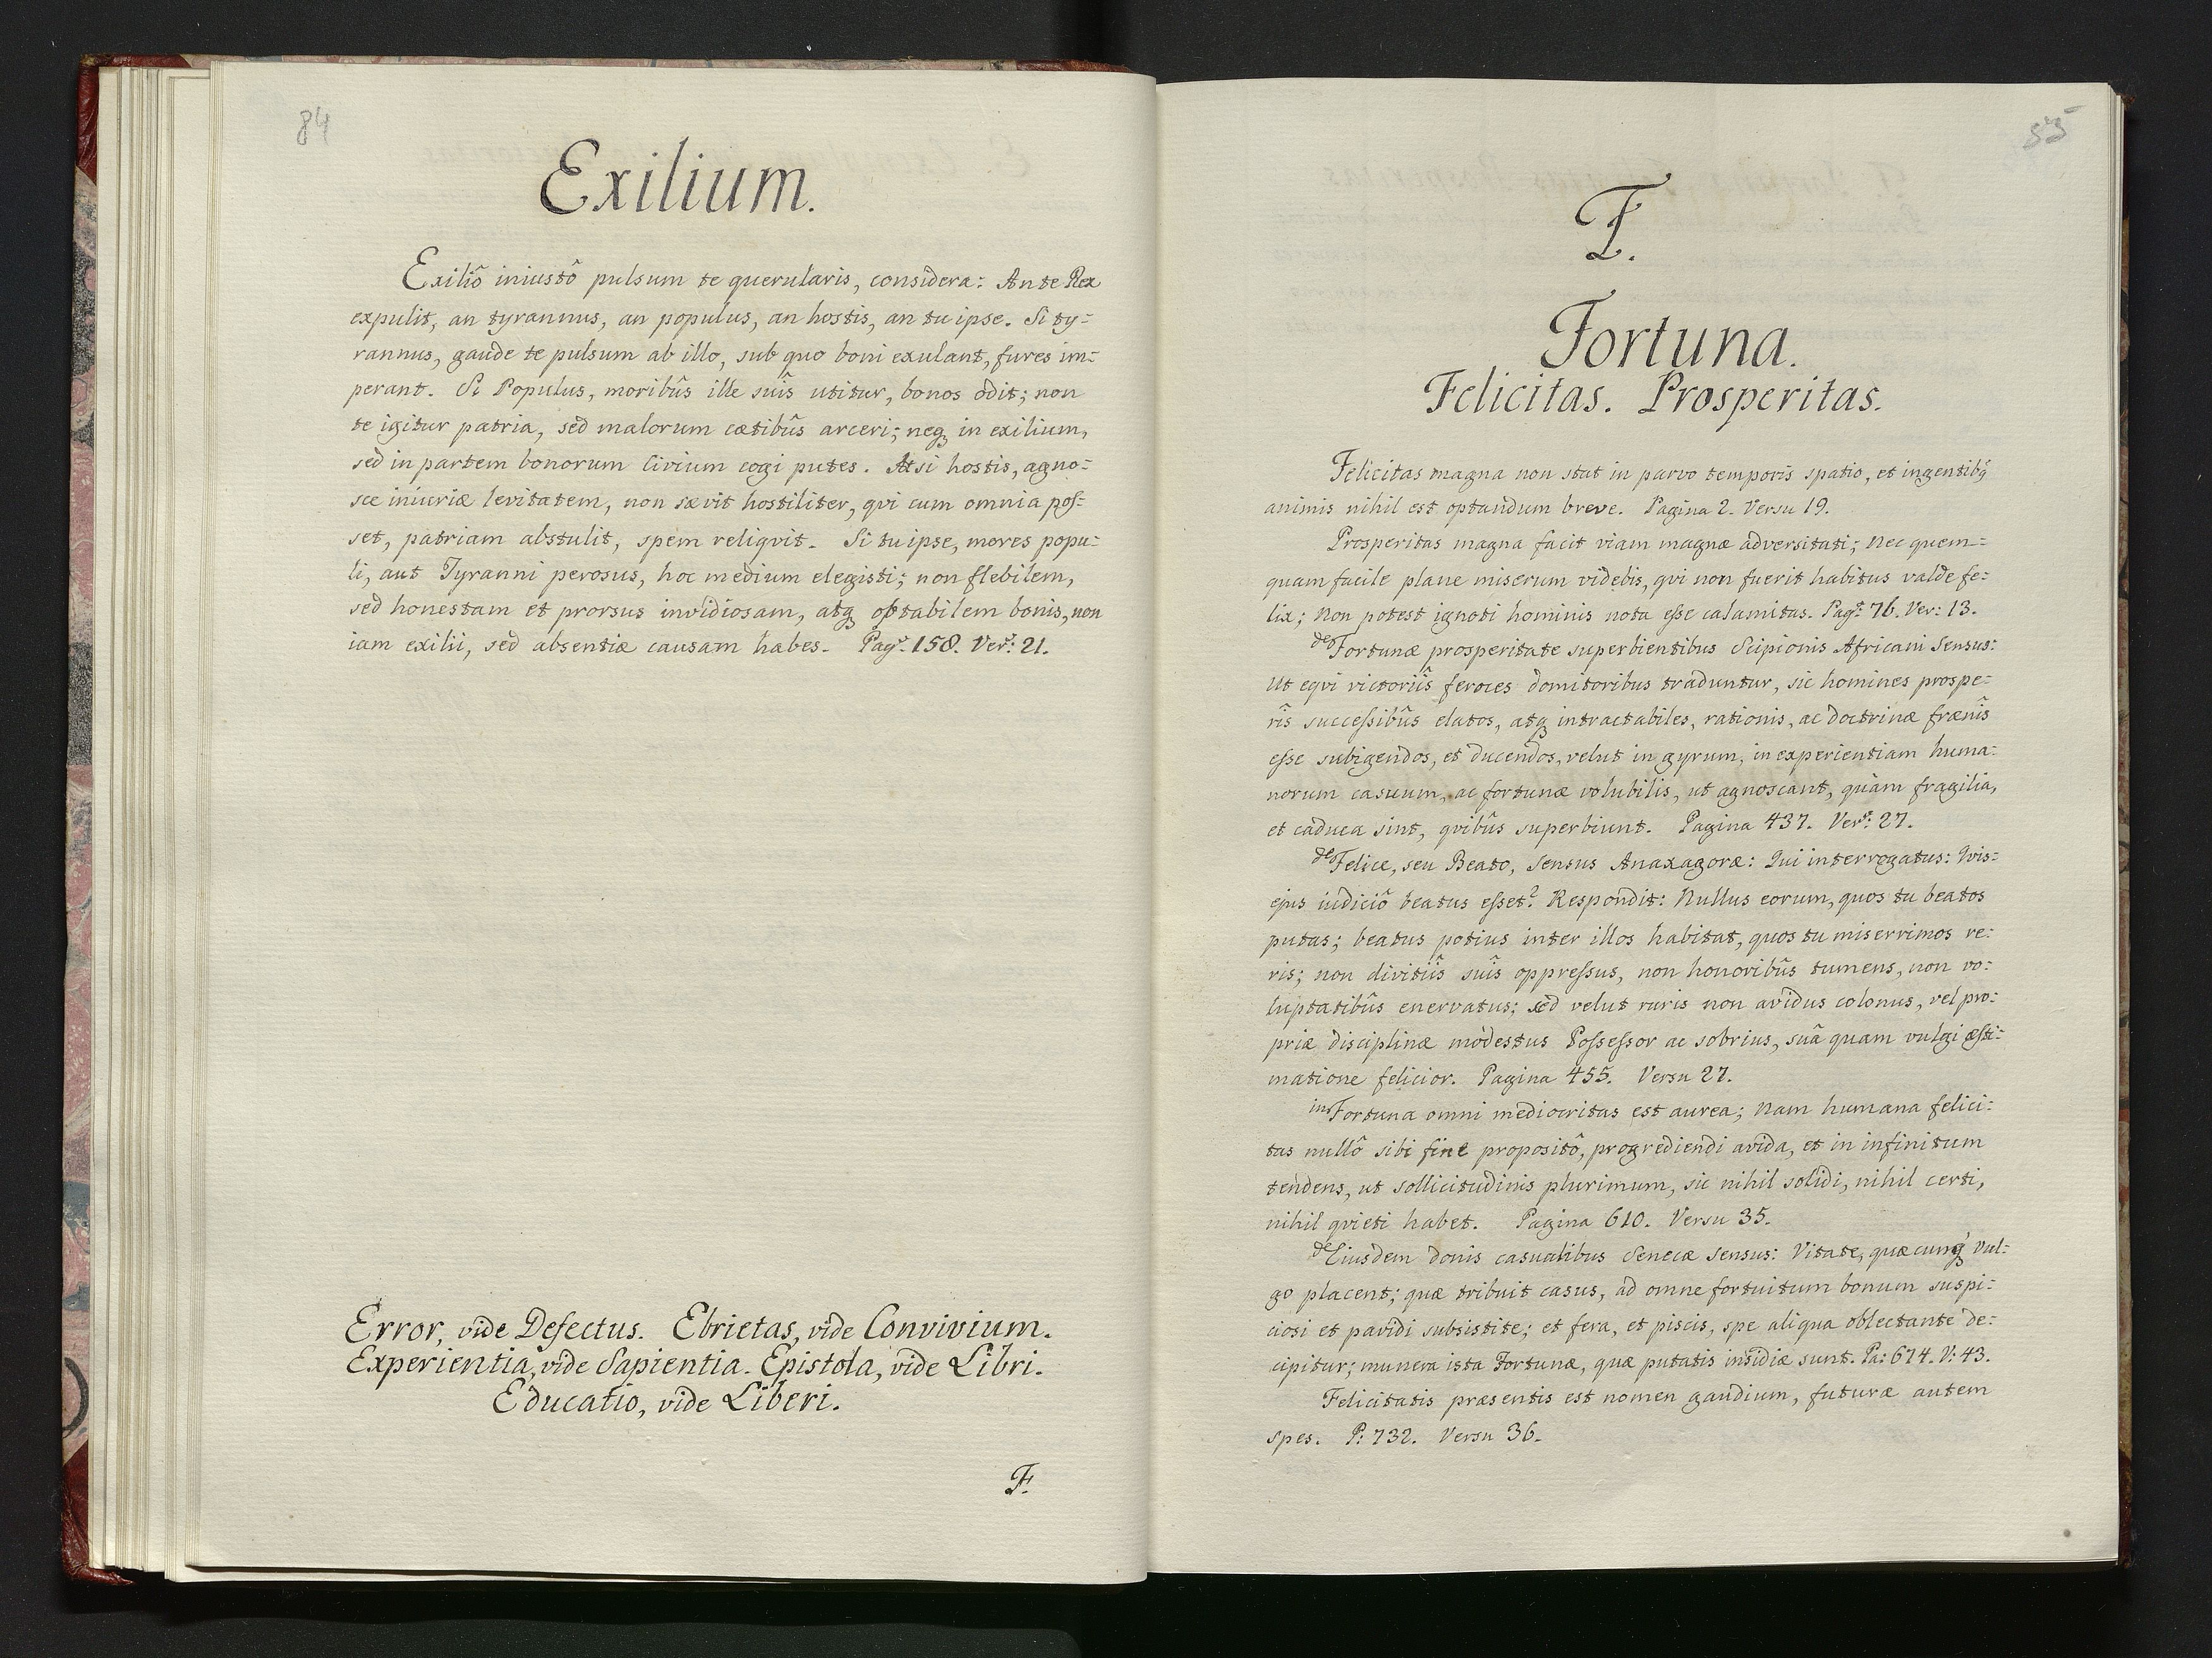 84
Exilium.
Exiliô iniustô pulsum te querularis, considera: An te Rex
expulit, an tyrannus, an populus, an hostis, an tu ipse. Si ty=
rannus, gaude te pulsum ab illo, sub quo boni exulant, fures im=
perant. Si Populus, moribûs ille suîs utitur, bonos odit; non
te igitur patria, sed malorum cœtibûs arceri; neq₃ in exilium,
sed in partem bonorum Civium cogi putes. At si hostis, agno=
sce iniuriæ levitatem, non sævit hostiliter, qvi cum omnia pos=
set, patriam abstulit, spem reliqvit. Si tu ipse, mores popu=
li, aut Tyranni perosus, hoc medium elegisti; non flebilem,
sed honestam et prorsus invidiosam, atq₃ optabilem bonis, non
iam exilii, sed absentiæ causam habes. Pagᵃ: 158. Verˢ: 21.
Error, vide Defectus. Ebrietas, vide Convivium.
Experientia, vide Sapientia. Epistola, vide Libri.
Educatio, vide Liberi.
F.
85
F.
Fortuna.
Felicitas. Prosperitas.
Felicitas magna non stat in parvo temporis spatio, et ingentibq̃
animis nihil est optandum breve. Pagina 2. Versu 19.
Prosperitas magna facit viam magnæ adversitati; Nec quem=
quam facile plane miserum videbis, qvi non fuerit habitus valde fe=
lix; Non potest ignoti hominis nota esse calamitas. Pagᵃ: 76. Ver: 13.
de Fortunæ prosperitate superbientibus Scipionis Africani Sensus:
Ut eqvi victoriîs feroces domitoribus traduntur, sic homines prospe=
rîs successibûs elatos, atq₃ intractabiles, rationis, ac doctrinæ frænîs
esse subigendos, et ducendos, velut in gyrum, in experientiam huma=
norum casuum, ac fortunæ volubilis, ut agnoscant, quàm fragilia,
et caduca sint, qvibûs superbiunt. Pagina 437. Verˢ: 27.
de Felice, seu Beato, Sensus Anaxagoræ: Qui interrogatus: Qvis=
ejus iudiciô beatus esset? Respondit: Nullus eorum, quos tu beatos
putas; beatus potius inter illos habitat, quos tu miserrimos re=
ris; non divitiîs suîs oppressus, non honoribûs tumens, non vo=
luptatibûs enervatus; sed velut ruris non avidus colonus, vel pro=
priæ disciplinæ modestus Possessor ac sobrius, suâ quam vulgi æsti=
matione felicior. Pagina 455. Versu 27.
in Fortuna omni mediocritas est aurea; Nam humana felici=
tas nullô sibi fine propositô, progrediendi avida, et in infinitum
tendens, ut sollicitudinis plurimum, sic nihil solidi, nihil certi,
nihil qvieti habet. Pagina 610. Versu 35.
de Eiusdem donis casualibus Senecæ sensus: Vitate, quæcunq₃ vul=
go placent; quæ tribuit casus, ad omne fortuitum bonum suspi=
ciosi et pavidi subsistite; et fera, et piscis, spe aliqua oblectante de=
cipitur; munera ista Fortunæ, quæ putatis insidiæ sunt. Pa: 674. V: 43.
Felicitatis præsentis est nomen gaudium, futuræ autem
spes. P: 732. Versu 36.